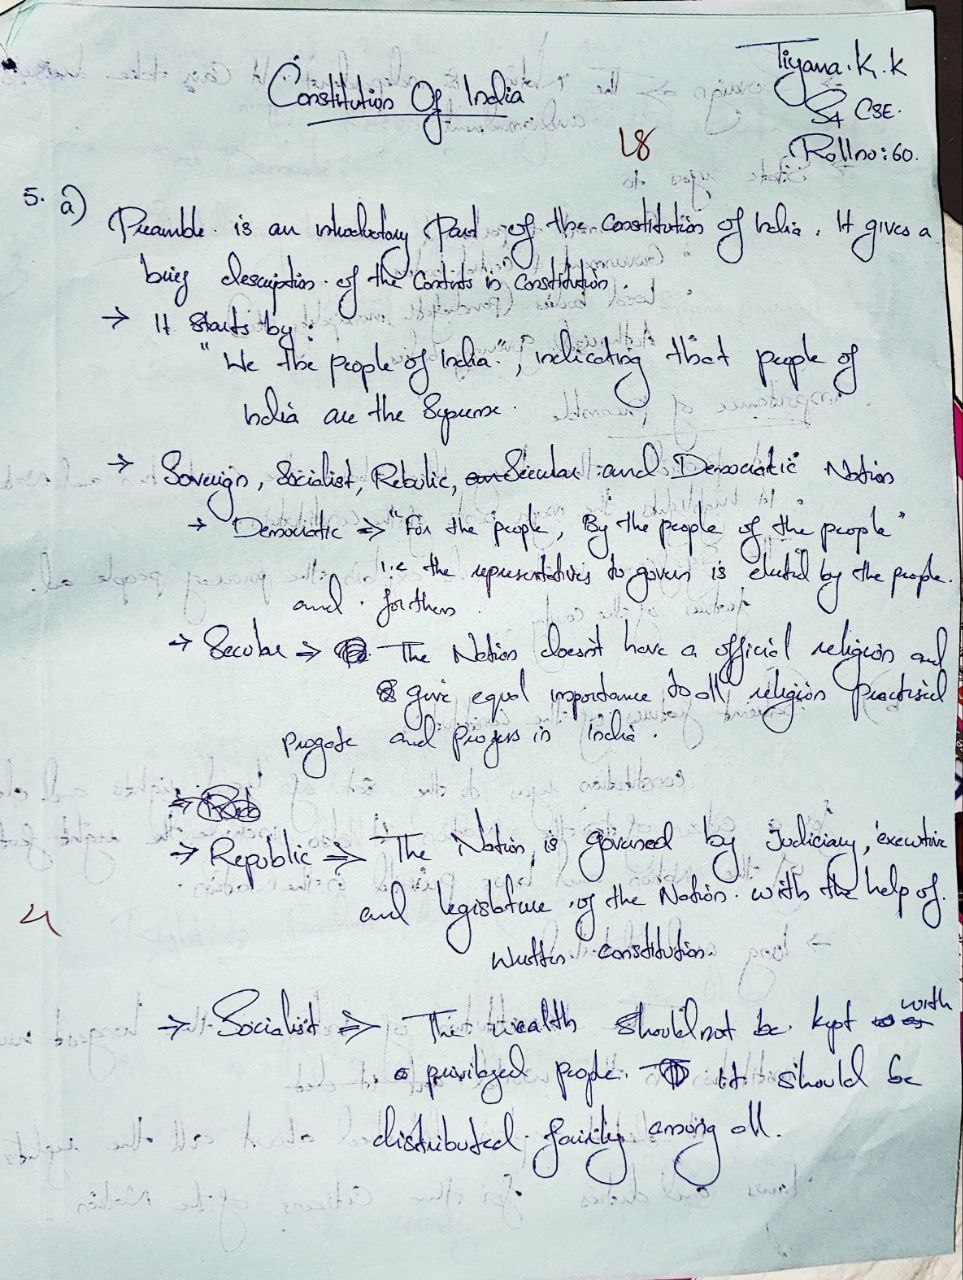 Constitution Of India
Tiyana. K. K
S4 CSE.
Roll no: 60.
18
5. a) Preamble is an introductory Part of the Constitution of India. It gives a
brief description of the Contents in Constitution.
→ It Starts by:
"We the people of India", indicating that people of
India are the Supreme.
→ Soverign, Socialist, Rebulic, Secular and Democratic Nation
→ Democratic ⇒ "For the people, By the people of the people"
i.e the representatives to govern is elected by the people.
and for them.
→ Secular ⇒ The Nation doesn't have a official religion and
give equal importance to all religion practised
and in India.
→ Republic ⇒ The Nation is governed by Judiciary, executive
4
and legislature of the Nation with the help of
written constitution.
→ Socialist ⇒ The wealth should not be kept with
privilaged people. it should be
distributed fairly among all.